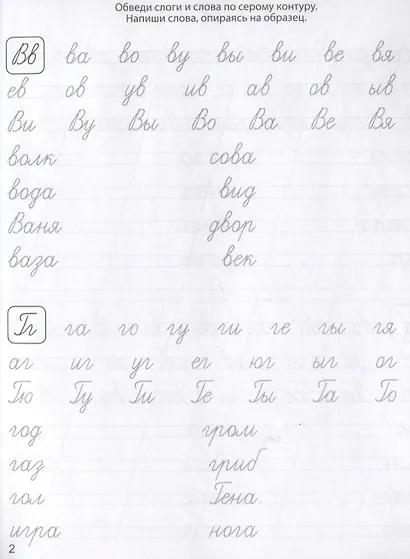 Обведи слоги и слова по серому контуру.
Напиши слова, опираясь на образец.
Вв ва во ву вы ви ве вя
ев ов ув ив ав ов ыв
Ви Ву Вы Во Ва Ве Вя
волк сова
вода вид
Ваня двор
ваза век
Гг га го гу ги ге гы гя
аг иг уг ег юг ыг ог
Гю Гу Ги Ге Гы Га Го
год гром
газ гриб
гол Гена
игра нога
2